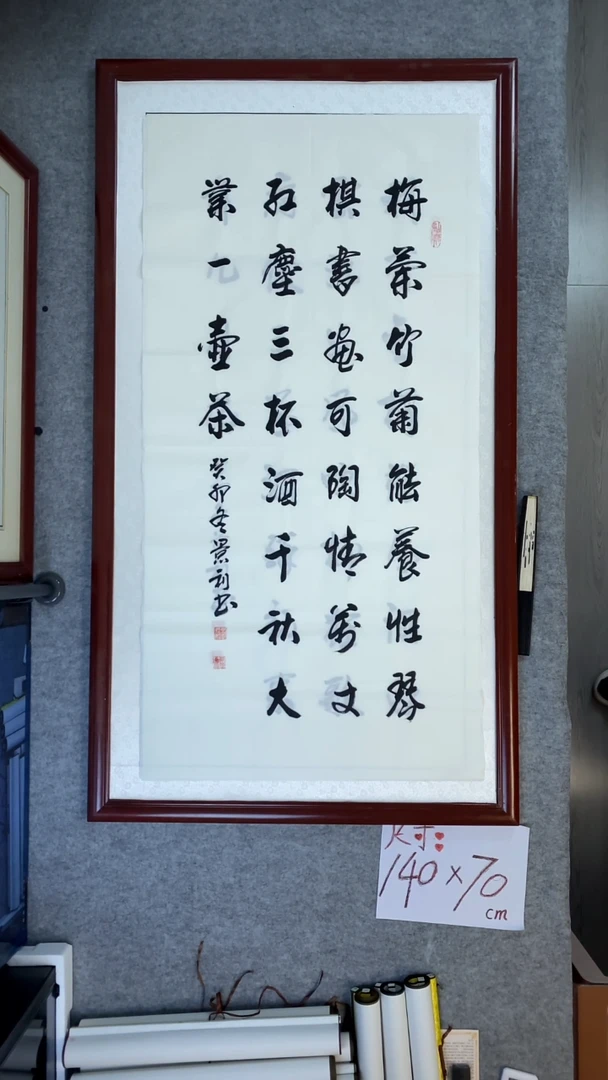 梅蘭竹菊能養性琴
棋書畫可陶情萬丈
紅塵三杯酒千秋大
業一壺茶
癸卯冬景利书
尺寸:
140×70
cm